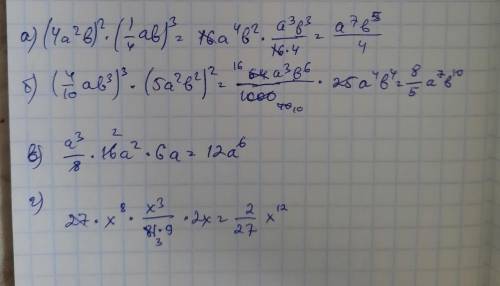 а) (4a²b)² · (1/4 ab)³ = 16a⁴b² · a³b³/16·4 = a⁷b⁵/4
б) (4/10 ab³)³ · (5a²b²)² = 16 64a³b⁶/1000 40 10 · 25a⁴b⁴ = 8/5 a⁷b¹⁰
в) a³/8 · 16 2 a² · 6a = 12a⁶
г)
27 · x⁸ · x³/81·9 3 · 2x = 2/27 x¹²